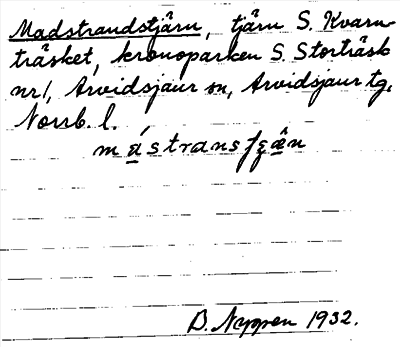 Madstrandstjärn, tjärn S. Kvarn-
träsket, kronoparken S. Storträsk
nr 1, Arvidsjaur sn, Arvidsjaur tg,
Norrb. l.
B. Nyppen 1932.